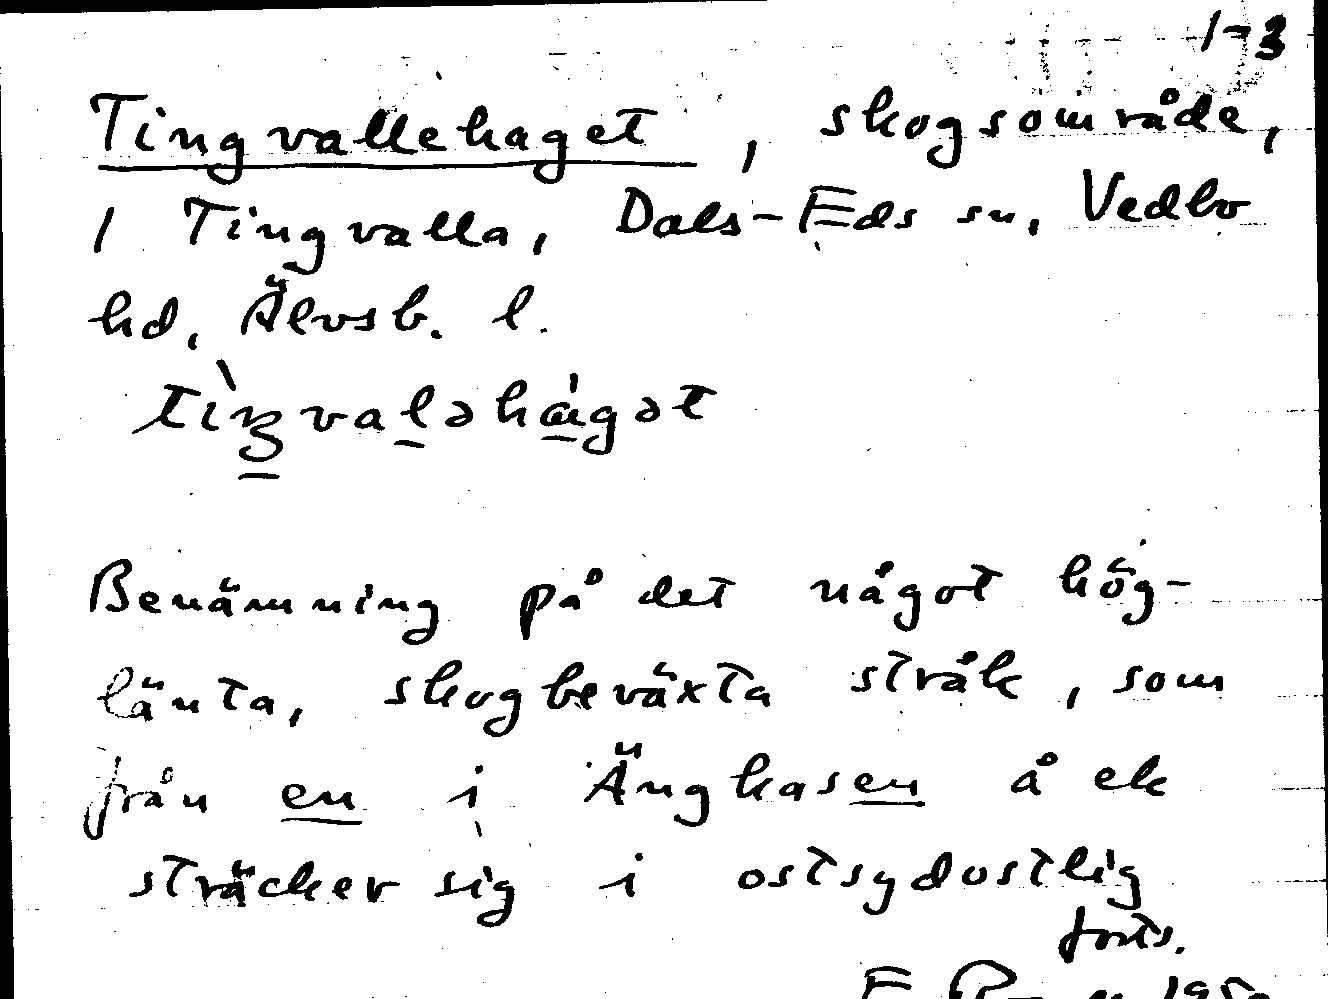 1-3
Tingvallehaget, skogsområde,
/ Tingvalla, Dals-Eds sn, Vedbo
hd, Älvsb. l.
tìŋvaləhágət
Benämning på det något hög-
länta, skogbeväxta stråk, som
från en i Änghasen å ek
sträcker sig i ostsydostlig
forts.